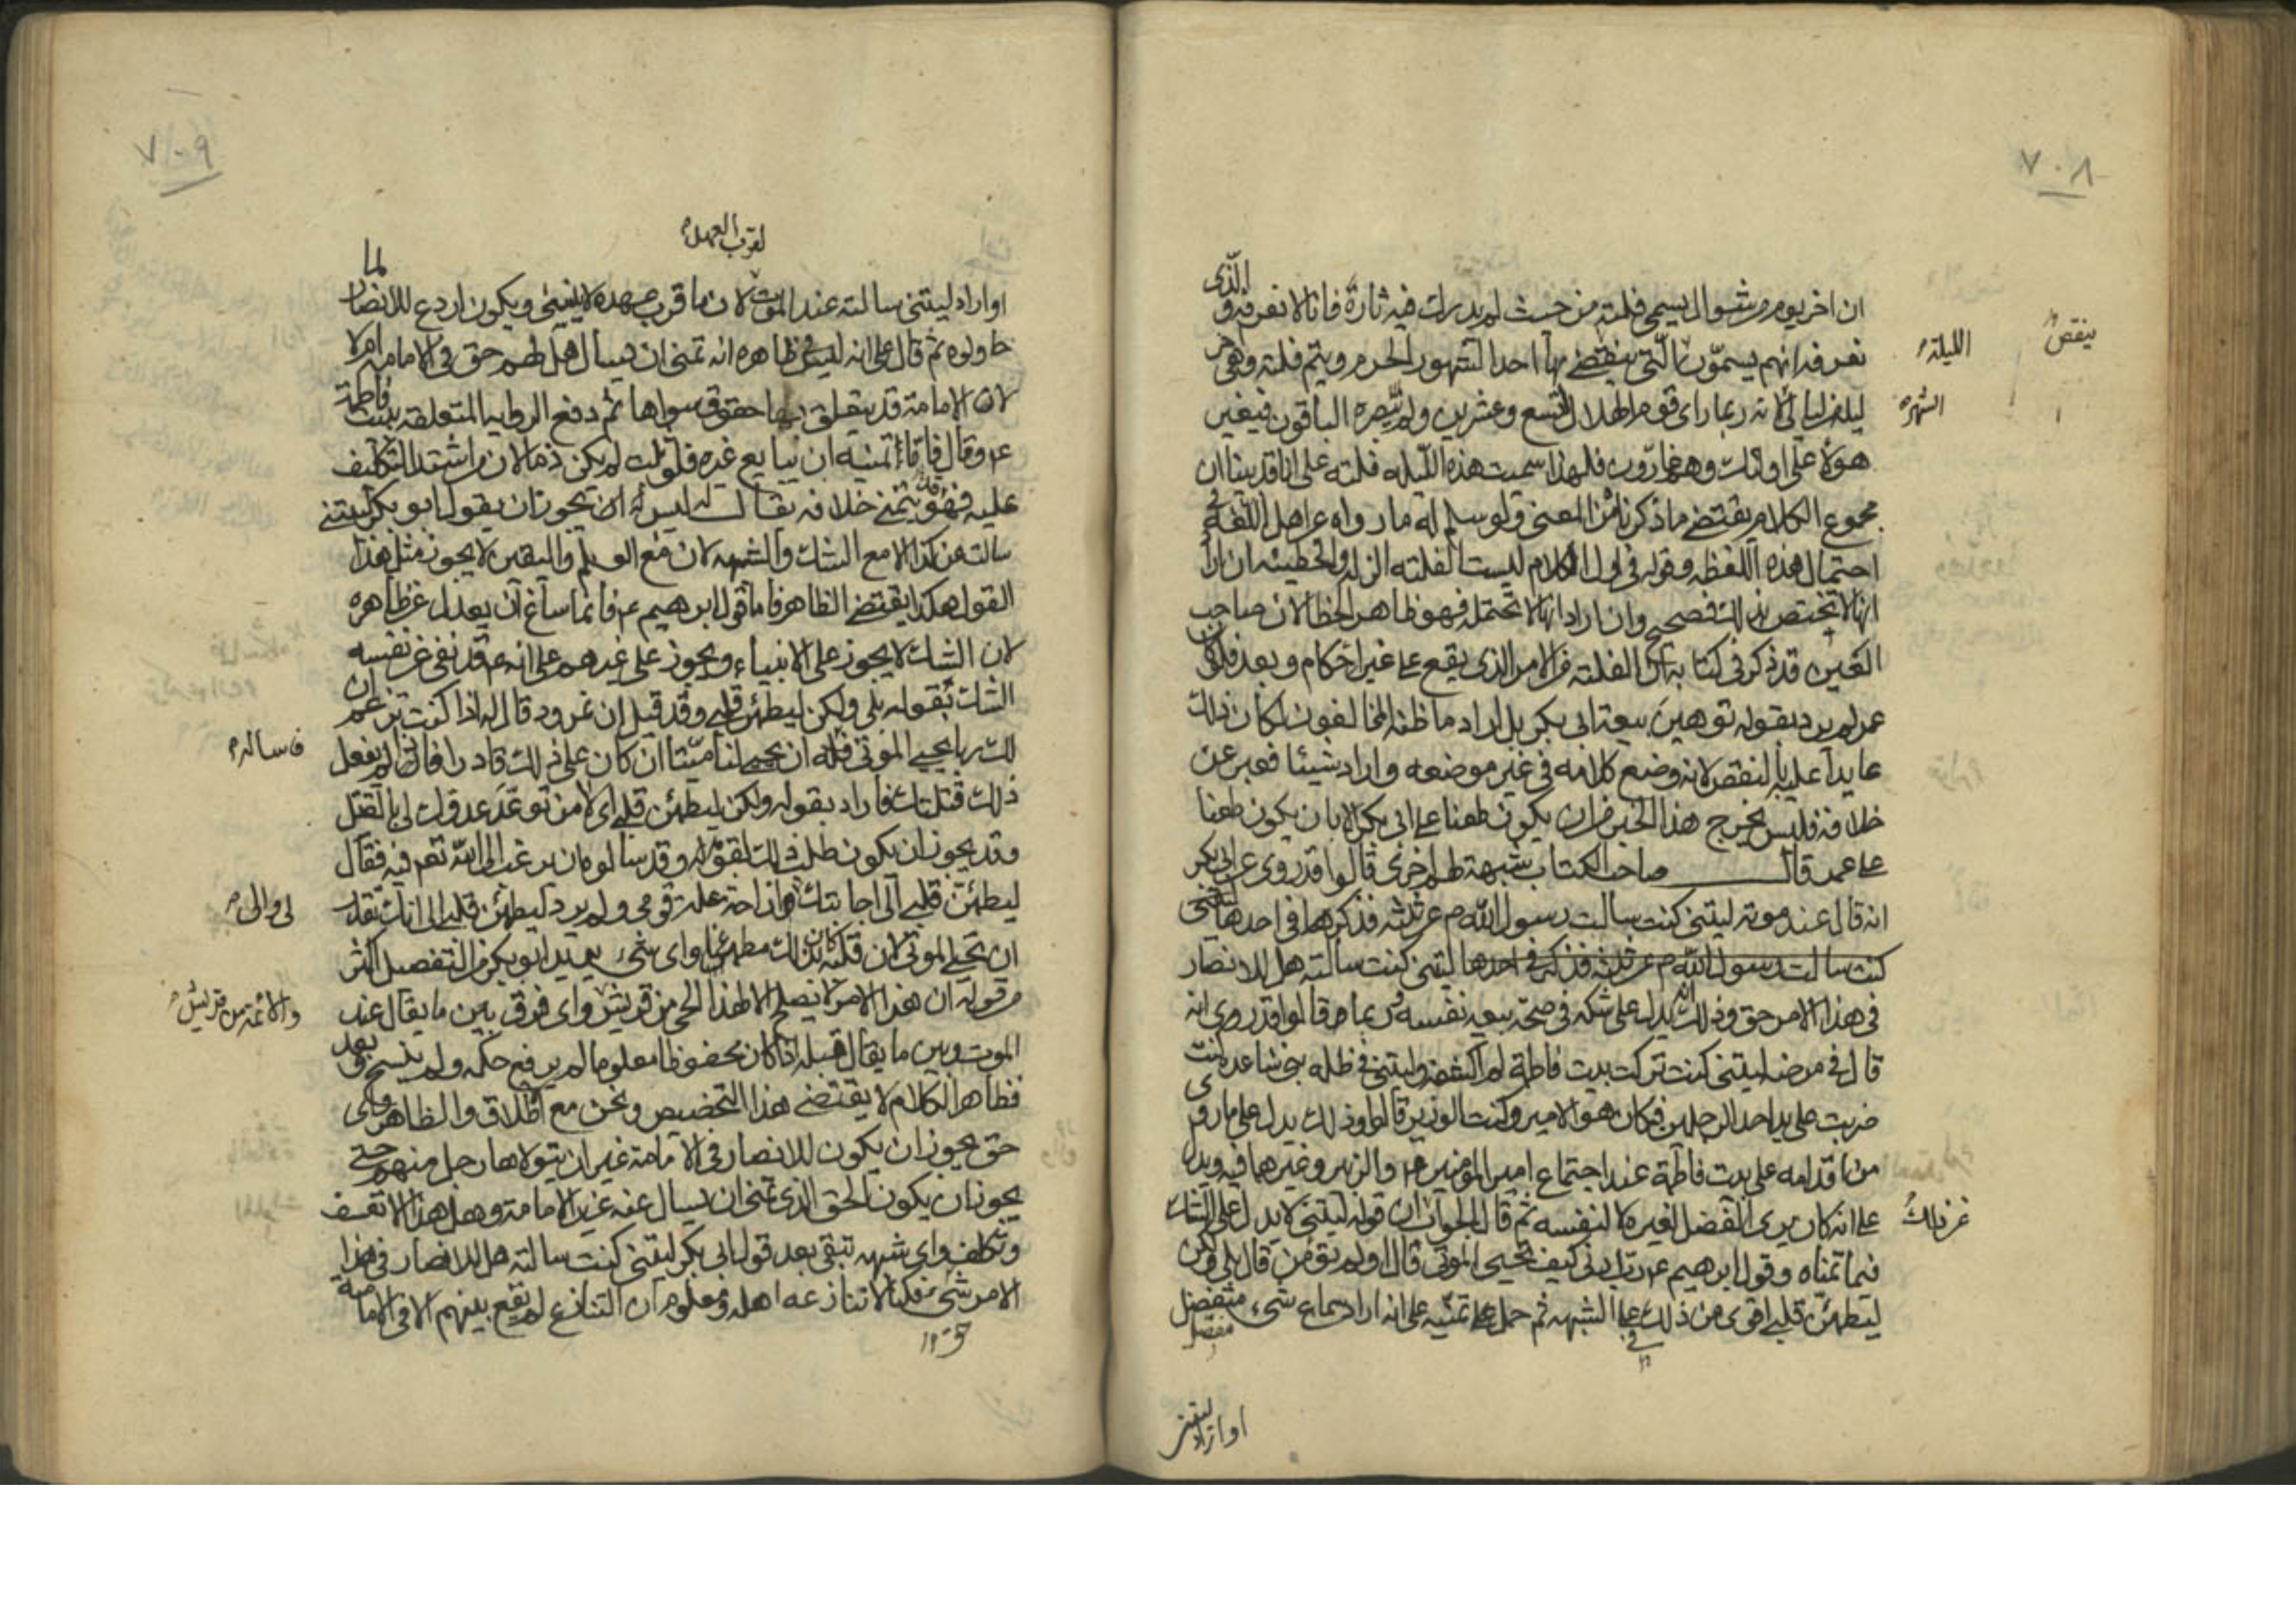 ٧٠٨
ان اخر يوم من شوال يسمى فلتة من حيث لم يدرك فيه ثارة فانا لا نعرفه و الذى
نعرفه انهم يسمون التى ينقضى بها احد الشهور الحرم ويتم فلتة وهى اخر
الليلة
ينقص
ليلة من ليالى لانه ربما راى قوم الهلال لتسع وعشرين ولم يبصره الباقون فيغير
الشهر
هؤلاء على اولئك وهم غارون فلهذا سميت هذه الليله فلتة على انا قد بينا ان
مجموع الكلام يقتضى ما ذكرناه من المعنى ولو سلم له ما رواه عن اهل اللغة فى
احتمال هذه اللفظه وقوله فى اول الكلام ليست الفلته الزلة والخطيئه ان اراد
انها لا تختص بذلك فصحيح وان اراد انها لا تحتمله فهو ظاهر الخطا لان صاحب
العين قد ذكر فى كتابه ان الفلته من الامر الذى يقع على غير احكام وبعد فلو كان
عمر لم يرد بقوله توهين بيعة ابى بكر بل اراد ما ظنه المخالفون لكان ذلك
عايدا عليه بالنقص لانه وضع كلامه فى غير موضعه واراد شيئا فعبر عن
خلافه فليس يخرج هذا الخبر من ان يكون طعنا على ابى بكر الا بان يكون طعنا
على عمر قال صاحب الكتاب شبهة لهم اخرى قالوا قد روى عن ابى بكر
انه قال عند موته ليتنى كنت سالت رسول الله ص عن ثلثه فذكر فى احدها ليتنى
كنت سالت رسول الله ص عن ثلثه فذكر فى احدها ليتنى كنت سالته هل للانصار
فى هذا الامر حق وذلك يدل على شكه فى صحة بيعه نفسه وربما قالوا قد روى انه
قال فى مرضه ليتنى كنت تركت بيت فاطمة لم اكشفه وليتنى فى ظله بنى ساعده كنت
ضربت على يد احد الرجلين فكان هو الامير وكنت الوزير قالوا وذلك يدل على ما روى
من اقدامه على بيت فاطمة عند اجتماع امير المؤمنين ع والزبير وغيرهما فيه ويدل
على انه كان يرى الفضل لغيره لا لنفسه ثم قال الجواب ان قوله ليتنى لا يدل على الشك
عن ذلك
فيما تمناه وقول ابرهيم ع رب ارنى كيف تحيى الموتى قال اولم تؤمن قال بلى ولكن
ليطمئن قلبى اقوى من ذلك فى الشبهه ثم حمل على تمنيه على انه اراد سماع شىء مفصل
مفصل
او اراد ليتنى
٧٠٩
لقرب العهد
او اراد ليتنى سالته عند الموت لان ما قرب عهده لا ينسى ويكون اردع للانصار لما
حاولوه ثم قال على انه ليس فى ظاهره انه تمنى ان يسال هل لهم حق فى الامامه ام لا
لان الامامة قد يتعلق بها حقوق سواها ثم دفع الروايه المتعلقه ببيت فاطمة
ع وقال فاما تمنيه ان يبايع غيره فلو ثبت لم يكن ذما لان من اشتد التكليف
عليه فهو يتمنى خلافه يقال له ليس يجوز ان يقول ابو بكر ليتنى
سالت عن كذا الا مع الشك والشبهه لان مع العلم واليقين لا يجوز مثل هذا
القول هكذا يقتضى الظاهر فاما قول ابرهيم ع فانما ساغ ان يعدل عن ظاهره
لان الشك لا يجوز على الانبياء ويجوز على غيرهم على انه ع قد نفى عن نفسه
الشك بقوله بلى ولكن ليطمئن قلبى وقد قيل ان نمرود قال له اذا كنت تزعم ان
لك ربا يحيى الموتى فاساله ان يحيى لنا ميتا ان كان على ذلك قادرا فان لم يفعل
فاساله
ذلك قتلتك فاراد بقوله ولكن ليطمئن قلبى اى لامن توعد عدوك لى بالقتل
وقد يجوز ان يكون طلب ذلك لقومه وقد سالوه ان يرغب الى الله تعه فيه فقال
ليطمئن قلبى الى اجابتك لى والى ازاحة علة قومى ولم يرد ليطمئن قلبى الى انك تقدر
لى والى
ان تحيى الموتى لان قلبه كان بذلك مطمئنا واى شىء يريد ابو بكر من التفصيل اكثر
من قوله ان هذا الامر لا يصلح الا لهذا الحى من قريش واى فرق بين ما يقال عند
والائمة من قريش
الموت وبين ما يقال قبله اذا كان محفوظا معلوما لم يرفع حكمه ولم ينسخ وبعد
فظاهر الكلام لا يقتضى هذا التخصيص ونحن مع اطلاق والظاهر واى
حق يجوز ان يكون للانصار فى الامامة غير ان يتولاها رجل منهم حتى
يجوز ان يكون الحق الذى تمنى ان يسال عنه غير الامامة وهل هذا الا تعسف
وتكلف واى شبهه تبقى بعد قول ابى بكر ليتنى كنت سالته هل للانصار فى هذا
الامر شىء فكنا لا ننازعه اهله ومعلوم ان التنازع لم يقع بينهم الا فى الامامة